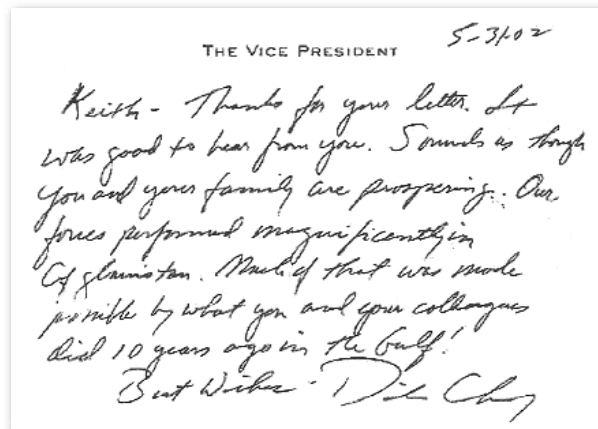 5-31-02
THE VICE PRESIDENT
Keith - Thanks for your letter. It
was good to hear from you. Sounds as though
you and your family are prospering. Our
forces performed magnificently in
Afghanistan. Much of that was made
possible by what you and your colleagues
did 10 years ago in the Gulf!
Best Wishes - Dick Cheney